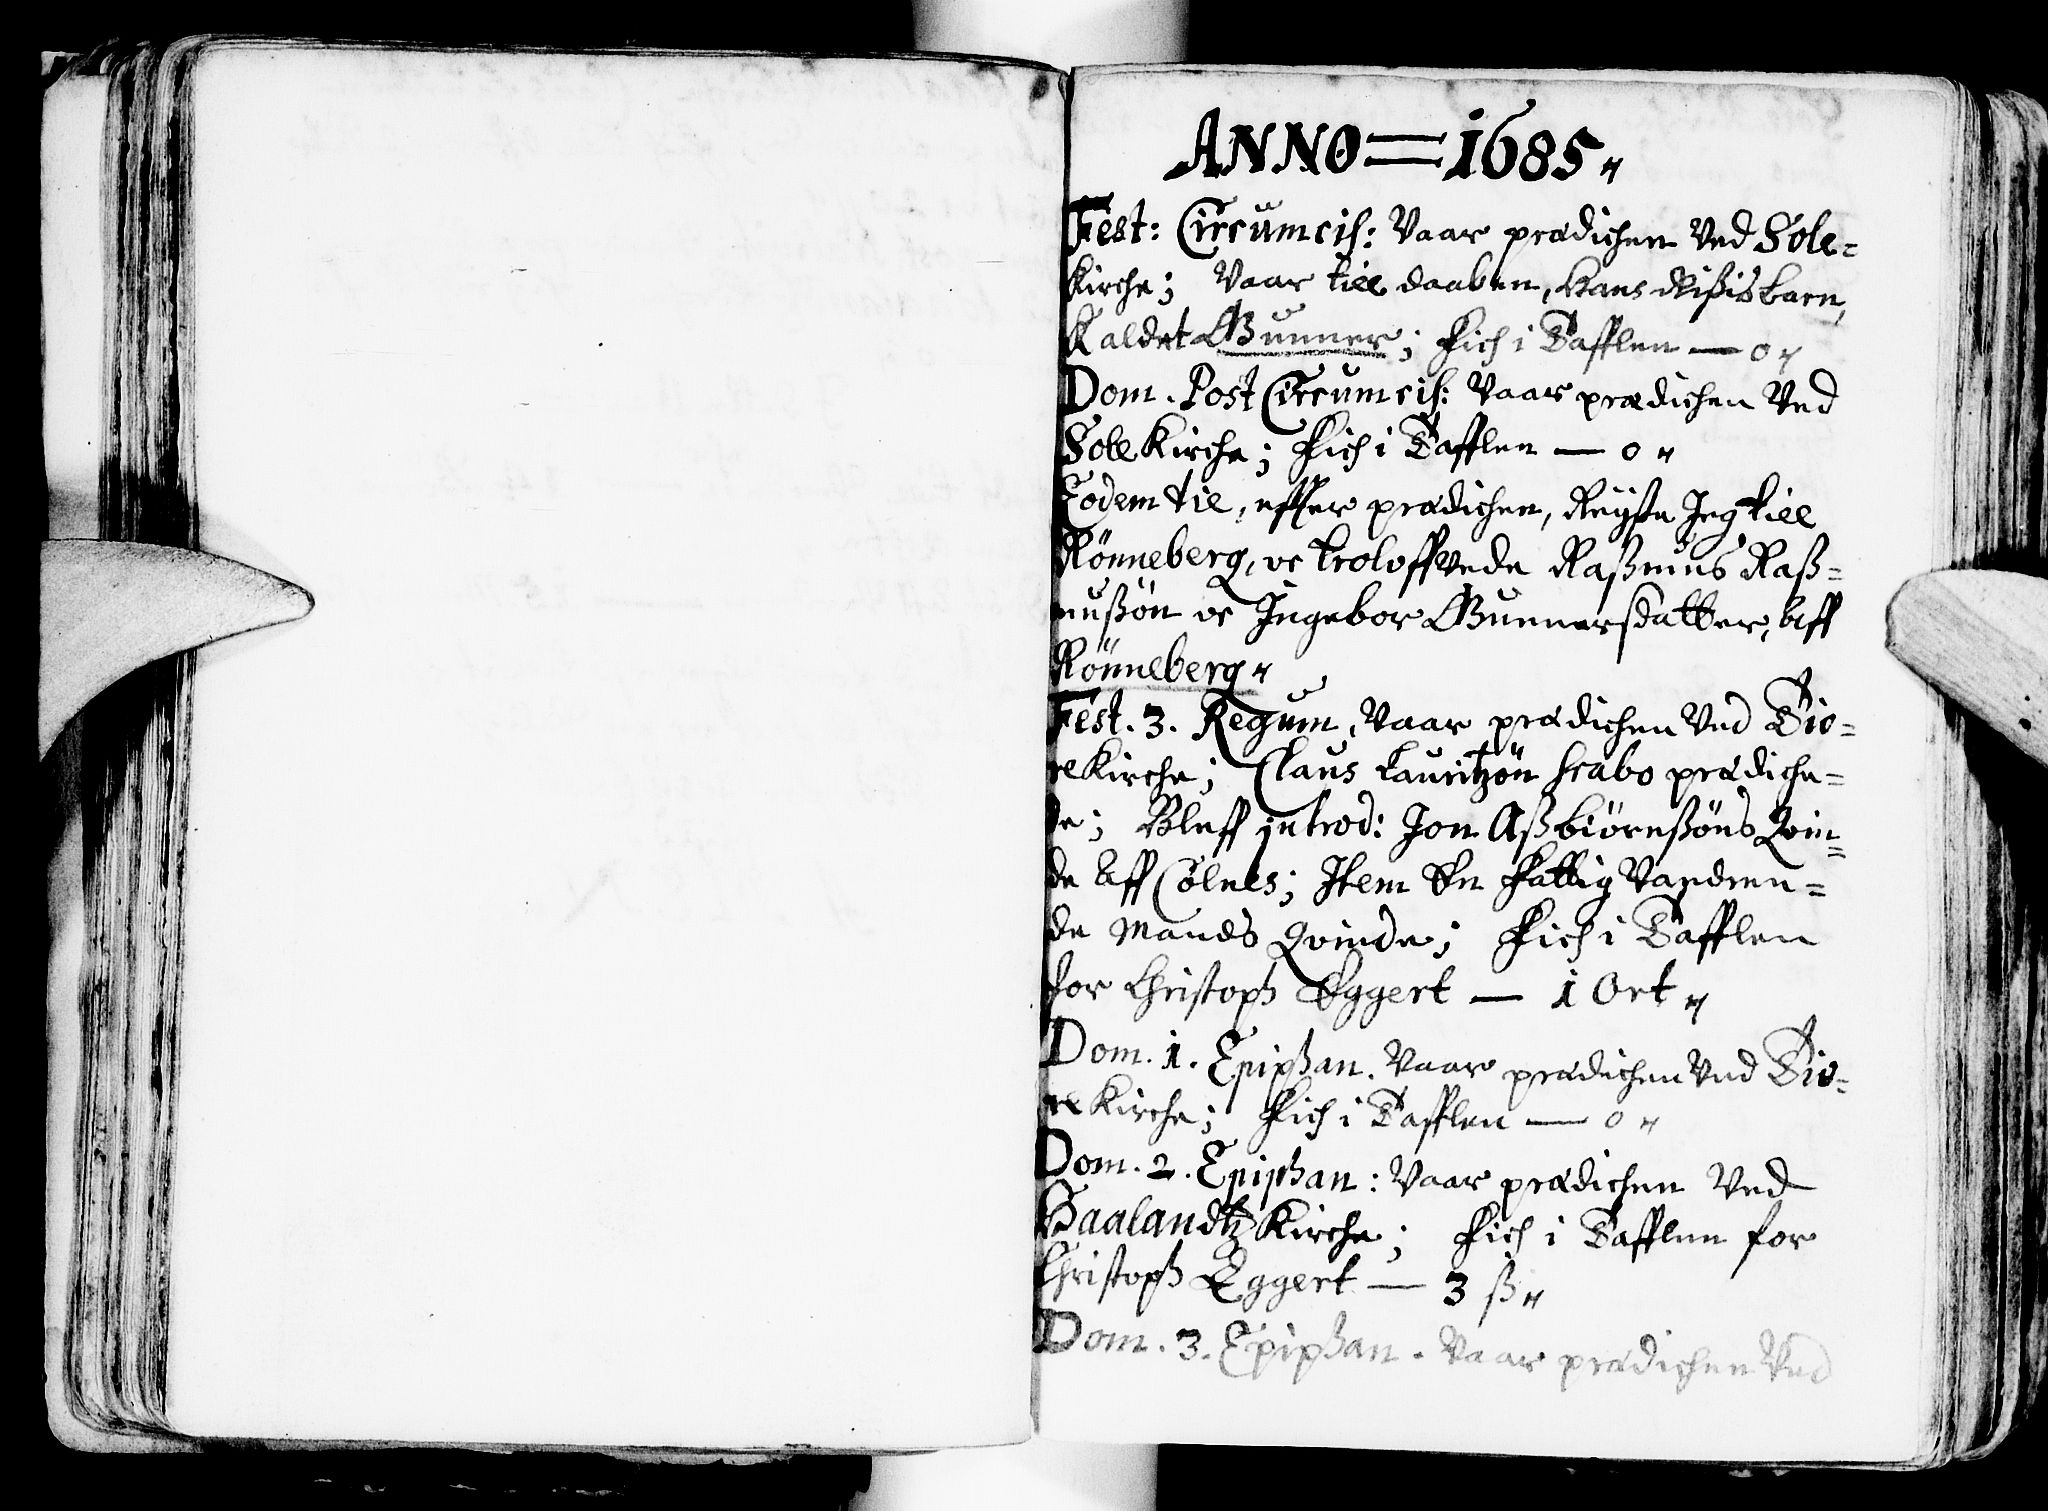 ANNO = 1685 "
Fest: Circumcis: Vaar prædichen Ved Sole=
Kirche; Vaar till daaben, Hans Rißis barn,
Kaldet Gunner; Fich i Tafflen — 0 "
Dom. Post Circumcis: Vaar prædichen Ved
Sole Kirche; Fich i Tafflen — 0 "
Eodem die, effter prædichen, Reyste Jeg till
Rönneberg, oc troloffvede Raßmus Raß=
mußön oc Ingebor Gunnersdatter, aff
Rönneberg "
Fest. 3. Regum, Vaar prædichen Ved Tio=
re Kirche; Claus Lauritzön scabo prædiche=
de; Bleff introd: Jon Aßbiörnßöns Qvin=
de aff Cölnes; Item En Fattig Vandren=
de Mands Qvinde; Fich i Tafflen
for Christoph Eggert — 1 Ort "
Dom. 1. Epiphan. Vaar prædichen Ved Tio=
re Kirche; Fich i Tafflen — 0 "
Dom. 2. Epiphan: Vaar prædichen Ved
Haalandtz Kirche; Fich i Tafflen for
Christoph Eggert — 3 ß "
Dom. 3. Epiphan. Vaar prædichen Ved